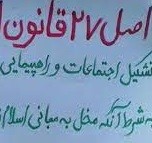 اصل ۲۷ قانون ا
تشکیل اجتماعات و راهپیمایی
به شرط آنکه مخل به مبانی اسلام